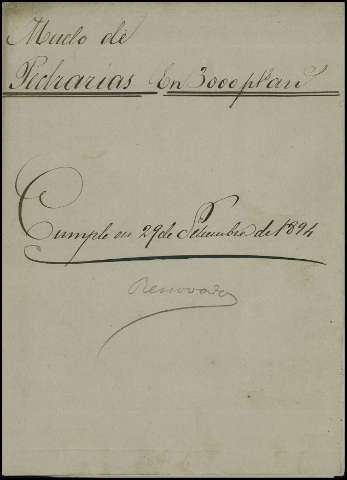 Muelo de
Pedrarias En 3000 plan
Cumple en 29 de Setiembre de 1894
Renovado